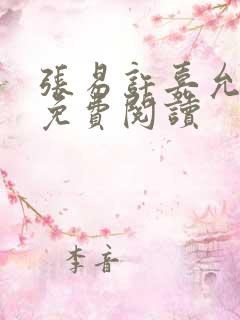 張易許嘉允
免費閱讀
李音